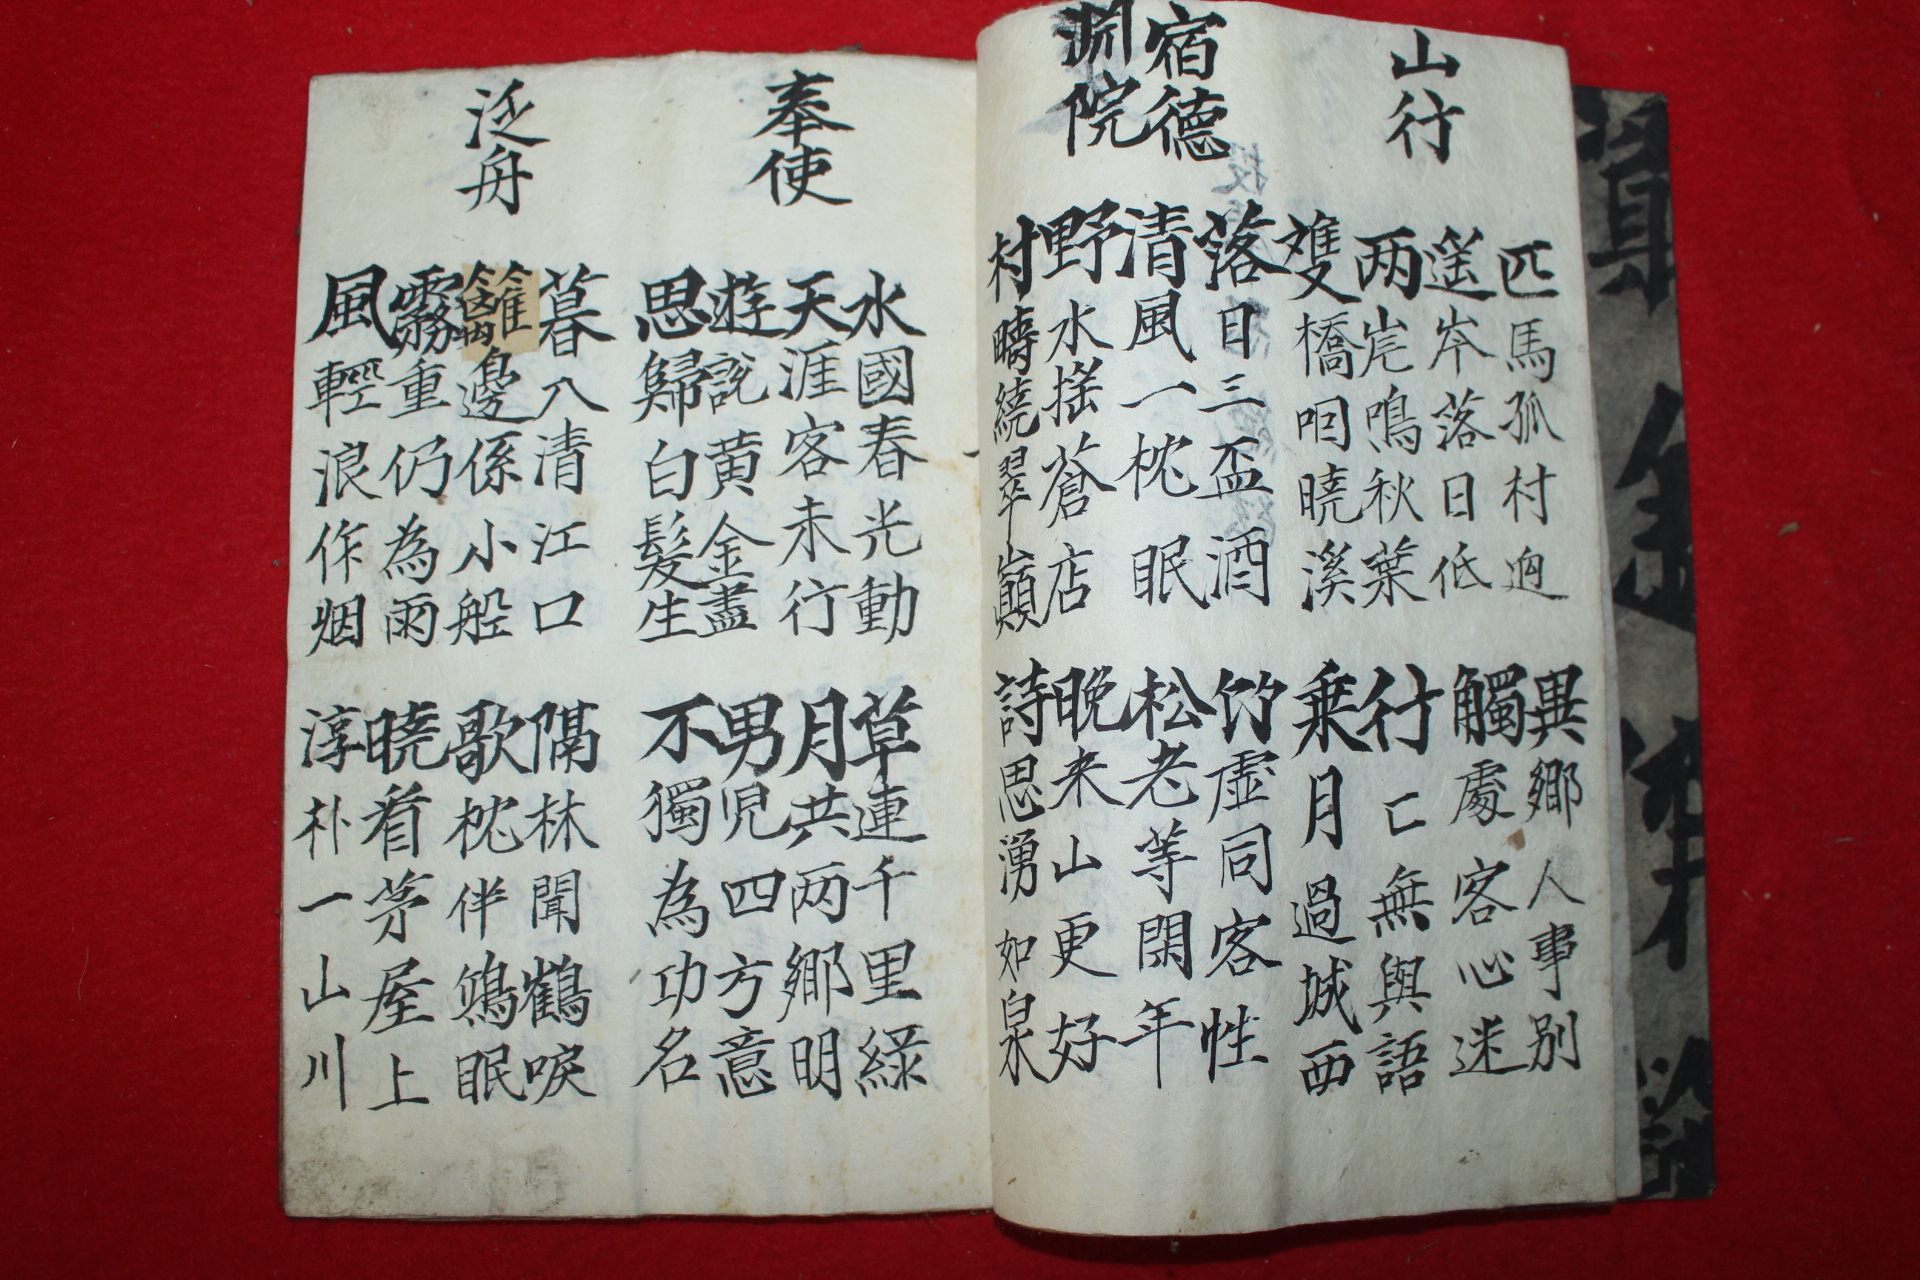 山行
匹馬孤村逈 異鄉人事別
遥岑落日低 觸處客心迷
两岸鳴秋葉 行々無與語
雙橋咽曉溪 乗月過城西
宿德
淵院
落日三盃酒 竹虛同客性
清風一枕眠 松老等閑年
野水揺蒼店 晚来山更好
村疇繞翠巓 詩思湧如泉
奉使
水國春光動 草連千里綠
天涯客未行 月共两鄉明
遊說黄金盡 男児四方意
思歸白髮生 不獨為功名
泛舟
暮入清江口 隔林聞鶴唳
籬邊係小船 歌枕伴鴻眠
霧重仍為雨 曉看茅屋上
風輕浪作烟 淳朴一山川